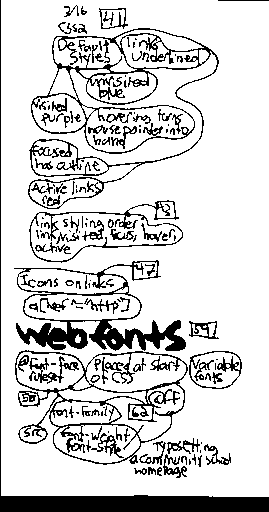 3/16
CSS2
41
Default
Styles
links
Underlined
unvisited
blue
visited
purple
hovering turns
mouse pointer into
hand
Focused
has outline
Active links
red
43
link styling order:
link, visited, focus, hover,
active
47
Icons on links
a[href^="http"]
Web fonts
59
@font-face
ruleset
Placed at start
of CSS
Variable
fonts
font-family
62
src
font-weight
font-style
Typesetting
a community school
homepage